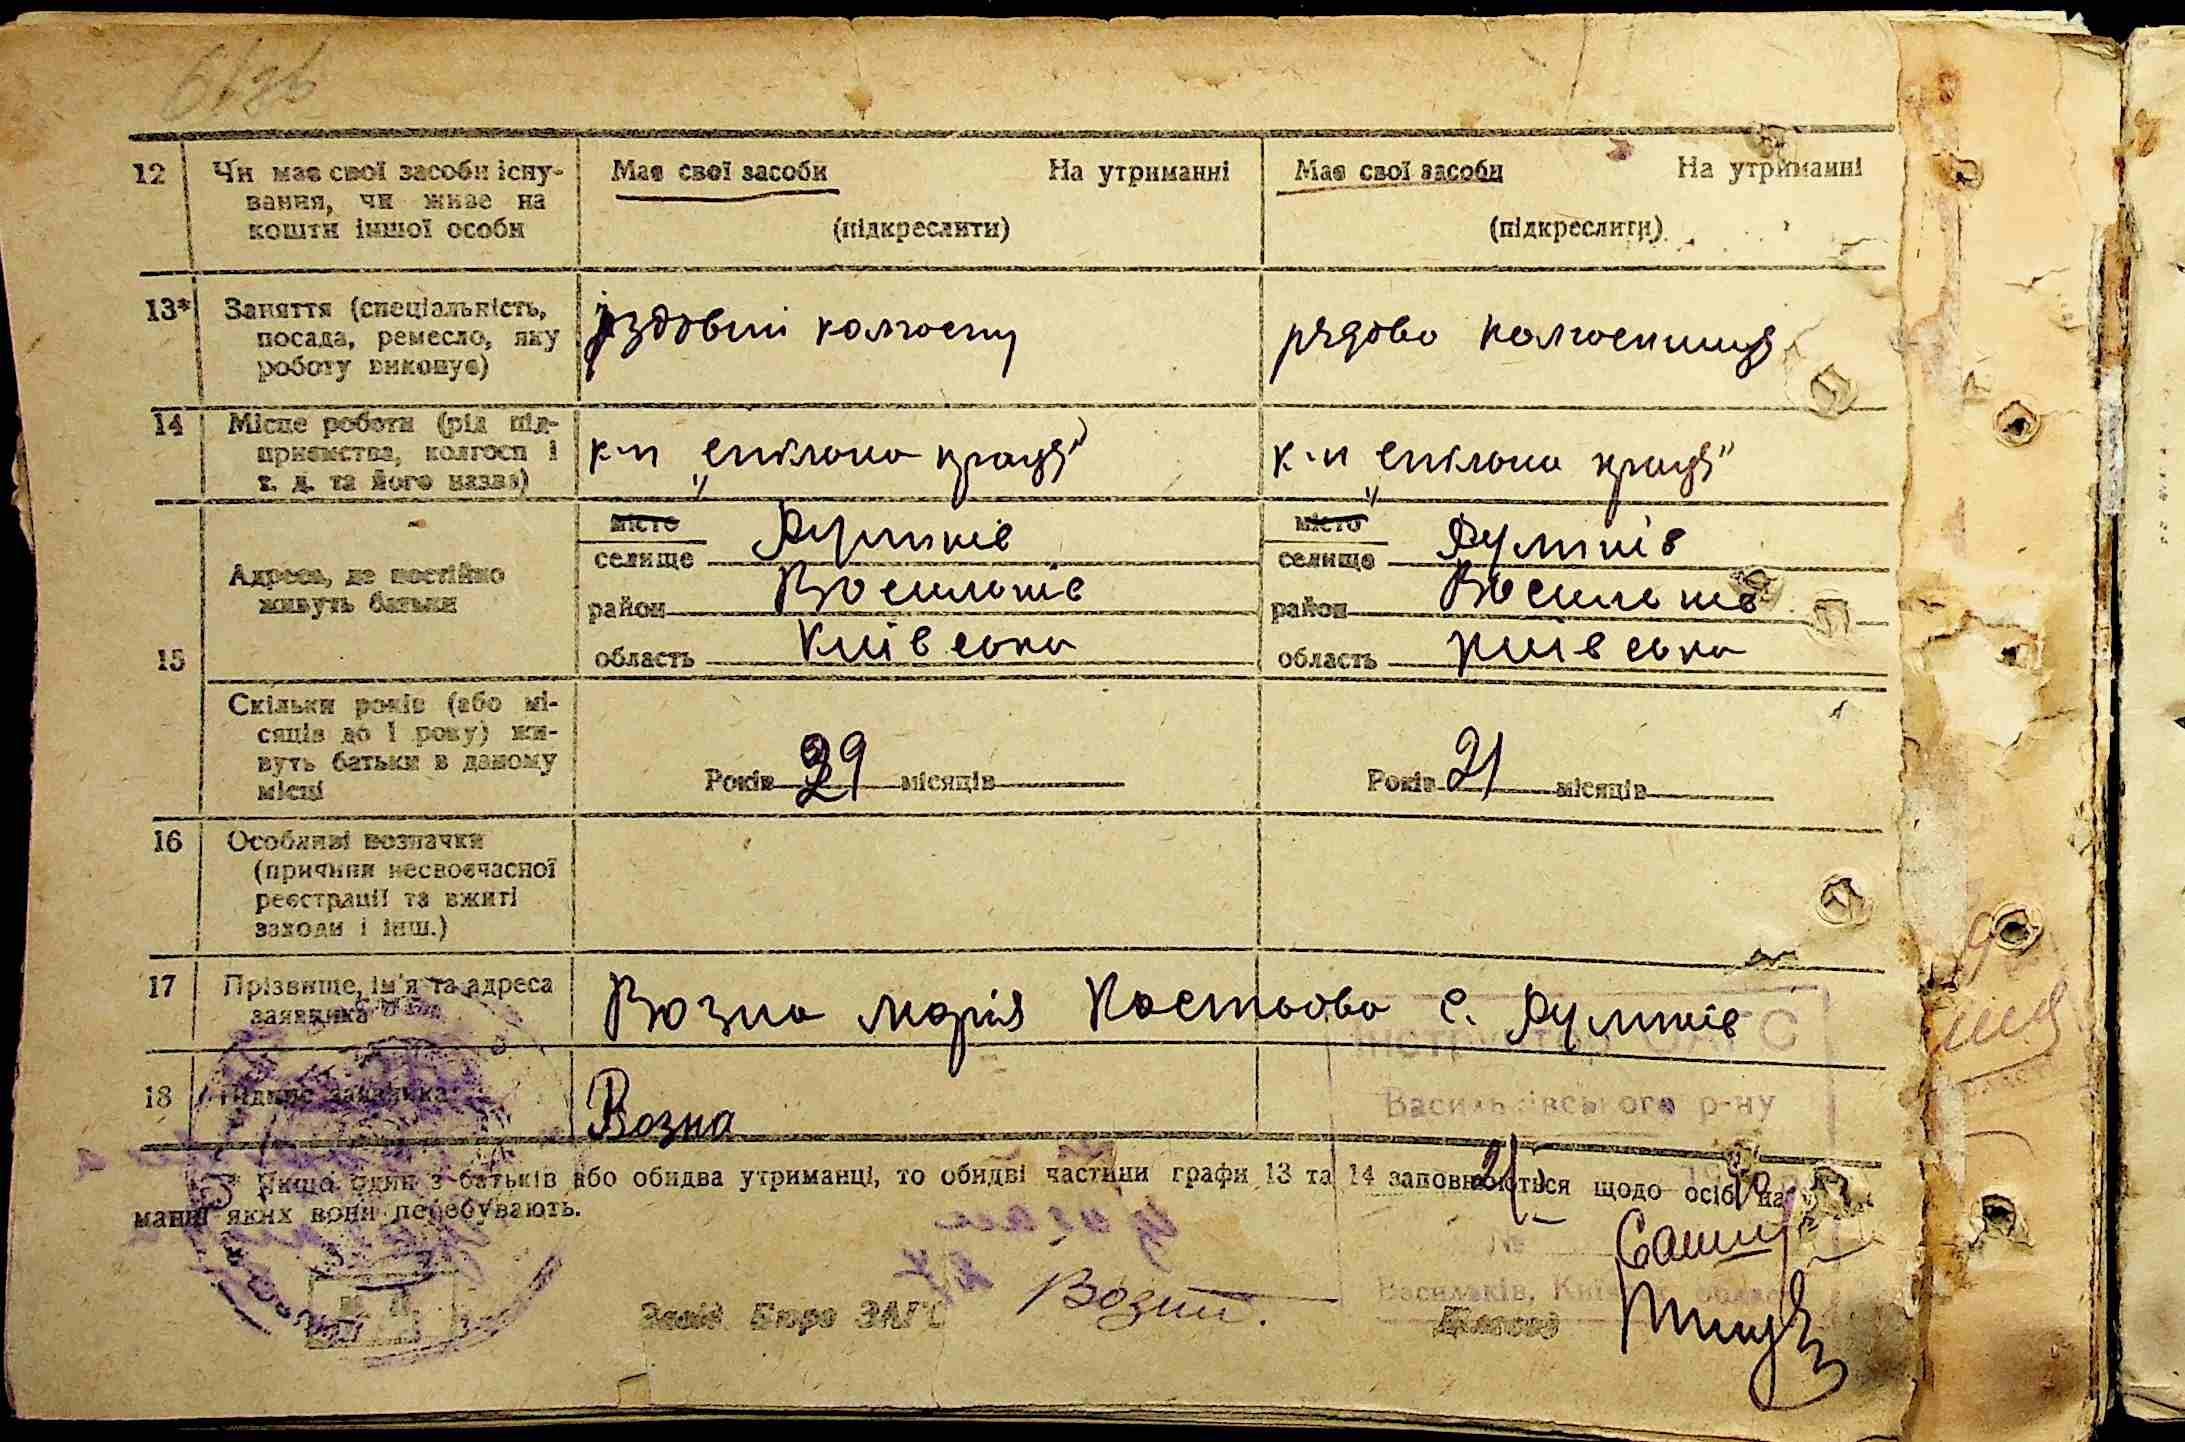 12 Чи має свої засоби існу- Має свої засоби На утриманні Має свої засоби На утриманні
вання, чи живе на
кошти іншої особи (підкреслити) (підкреслити)
13* Заняття (спеціальність,
посада, ремесло, яку їздовий колгоспу рядова колгоспниця
роботу виконує)
14 Місце роботи (рід під-
приємства, колгосп і к-п "спільна праця" к-п "спільна праця"
т. д. та його назва)
місто Яцьків місто
селище селище
Адреса, де постійно
живуть батьки район Васильків район Васильків
15 область Київська область Київська
Скільки років (або мі-
сяців до 1 року) жи-
вуть батьки в даному
місці Років 29 місяців Років 21 місяців
16 Особливі позначки
(причини несвоєчасної
реєстрації та вжиті
заходи і інш.)
17 Прізвище, ім'я та адреса
заявника Возна Марія Костьова с.
18 Підпис заявника Возна
Інструктор ЗАГС
Васильківського р-ну
* Якщо один з батьків або обидва утриманці, то обидві частини графи 13 та 14 заповнюються щодо осіб, на
манні яких вони перебувають.
№
Васильків, Київ. облас
Завід. Бюро ЗАГС Діловод